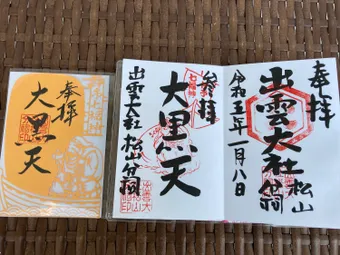 奉拝
出雲大社松山分祠
令和五年一月八日
参拝
大黒天
出雲大社松山分祠
奉拝
大黒天